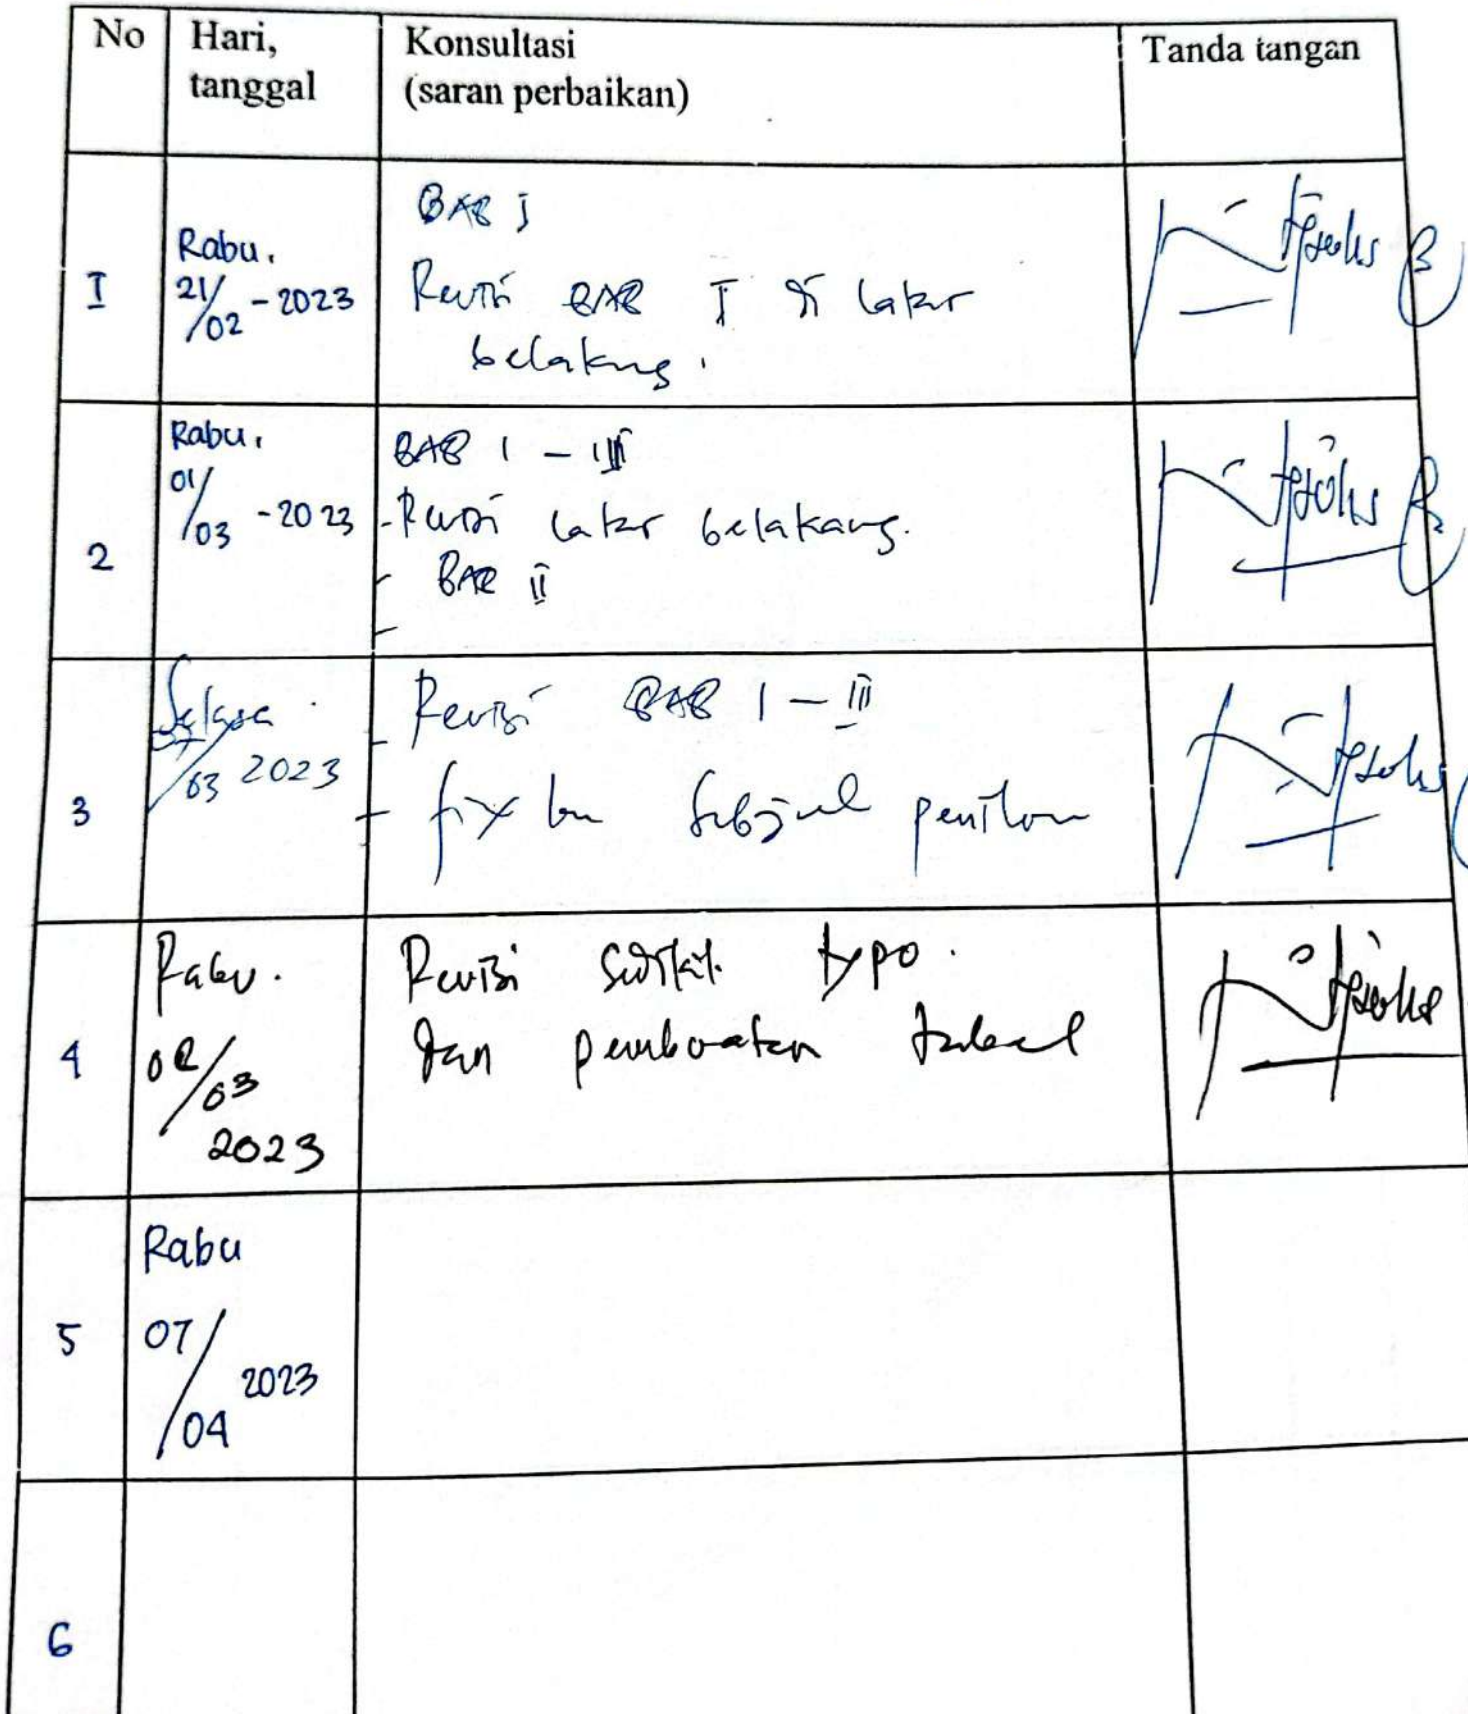 No
Hari,
tanggal
Konsultasi
(saran perbaikan)
Tanda tangan
I
Rabu.
21/02 - 2023
BAB I
Revisi BAB I di latar
belakang.
2
Rabu,
01/03 - 2023
BAB I - III
- Revisi latar belakang.
- BAB II
-
3
Selasa
/03 2023
- Revisi BAB I - III
- fix
4
Rabu.
/03
2023
Revisi typo.
dan pembuatan
5
Rabu
07/04 2023
6